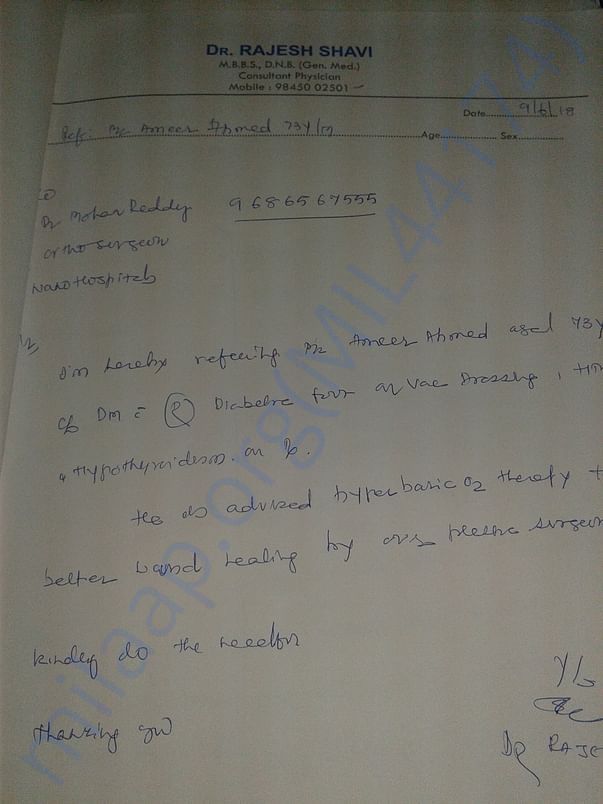 DR. RAJESH SHAVI
M.B.B.S., D.N.B. (Gen. Med.)
Consultant Physician
Mobile : 98450 02501
Date 9/6/18
Ref: Ameer Ahmed 73Y/M Age Sex
Dr Mohan Reddy 9686567555
ortho surgeon
Nano Hospitals
I'm hereby refering Ameer Ahmed aged 73Y
c/o DM c̄ (R) Diabetic foot on Vac Dressing, HTN
Hypothyroidism on
He is advised hyperbaric O2 therapy
better wound healing by our plastic surgeon
kindly do the needful
Thanking you
Dr RAJE
milaap.org(MIL44174)